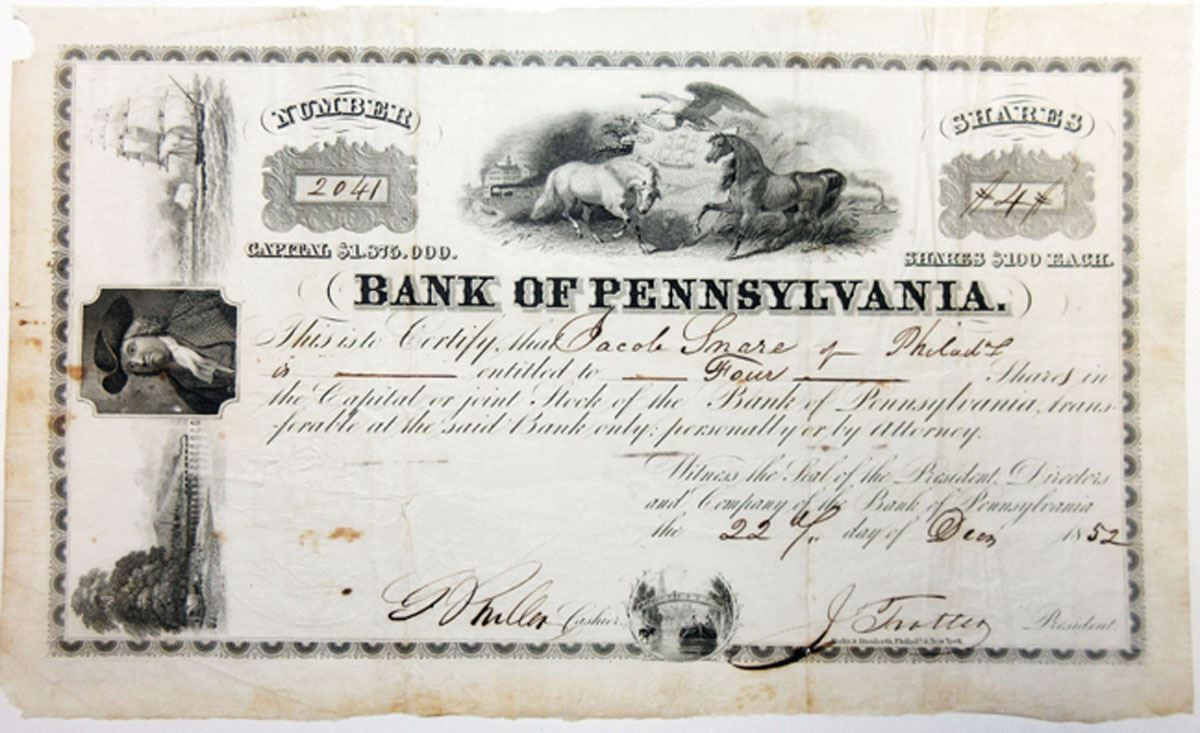 NUMBER
SHARES
2041
4
CAPITAL $1.875.000.
SHARES $100 EACH.
BANK OF PENNSYLVANIA.
This is to Certify, that Jacob Snare of Philad
is entitled to Four Shares in
the Capital or joint Stock of the Bank of Pennsylvania, trans-
ferable at the said Bank only; personally or by Attorney.
Witness the Seal of the President, Directors
and Company of the Bank of Pennsylvania
the 22 day of Decm 1852
Cashier.
J Trotter President.
Danforth, Philada & New York.